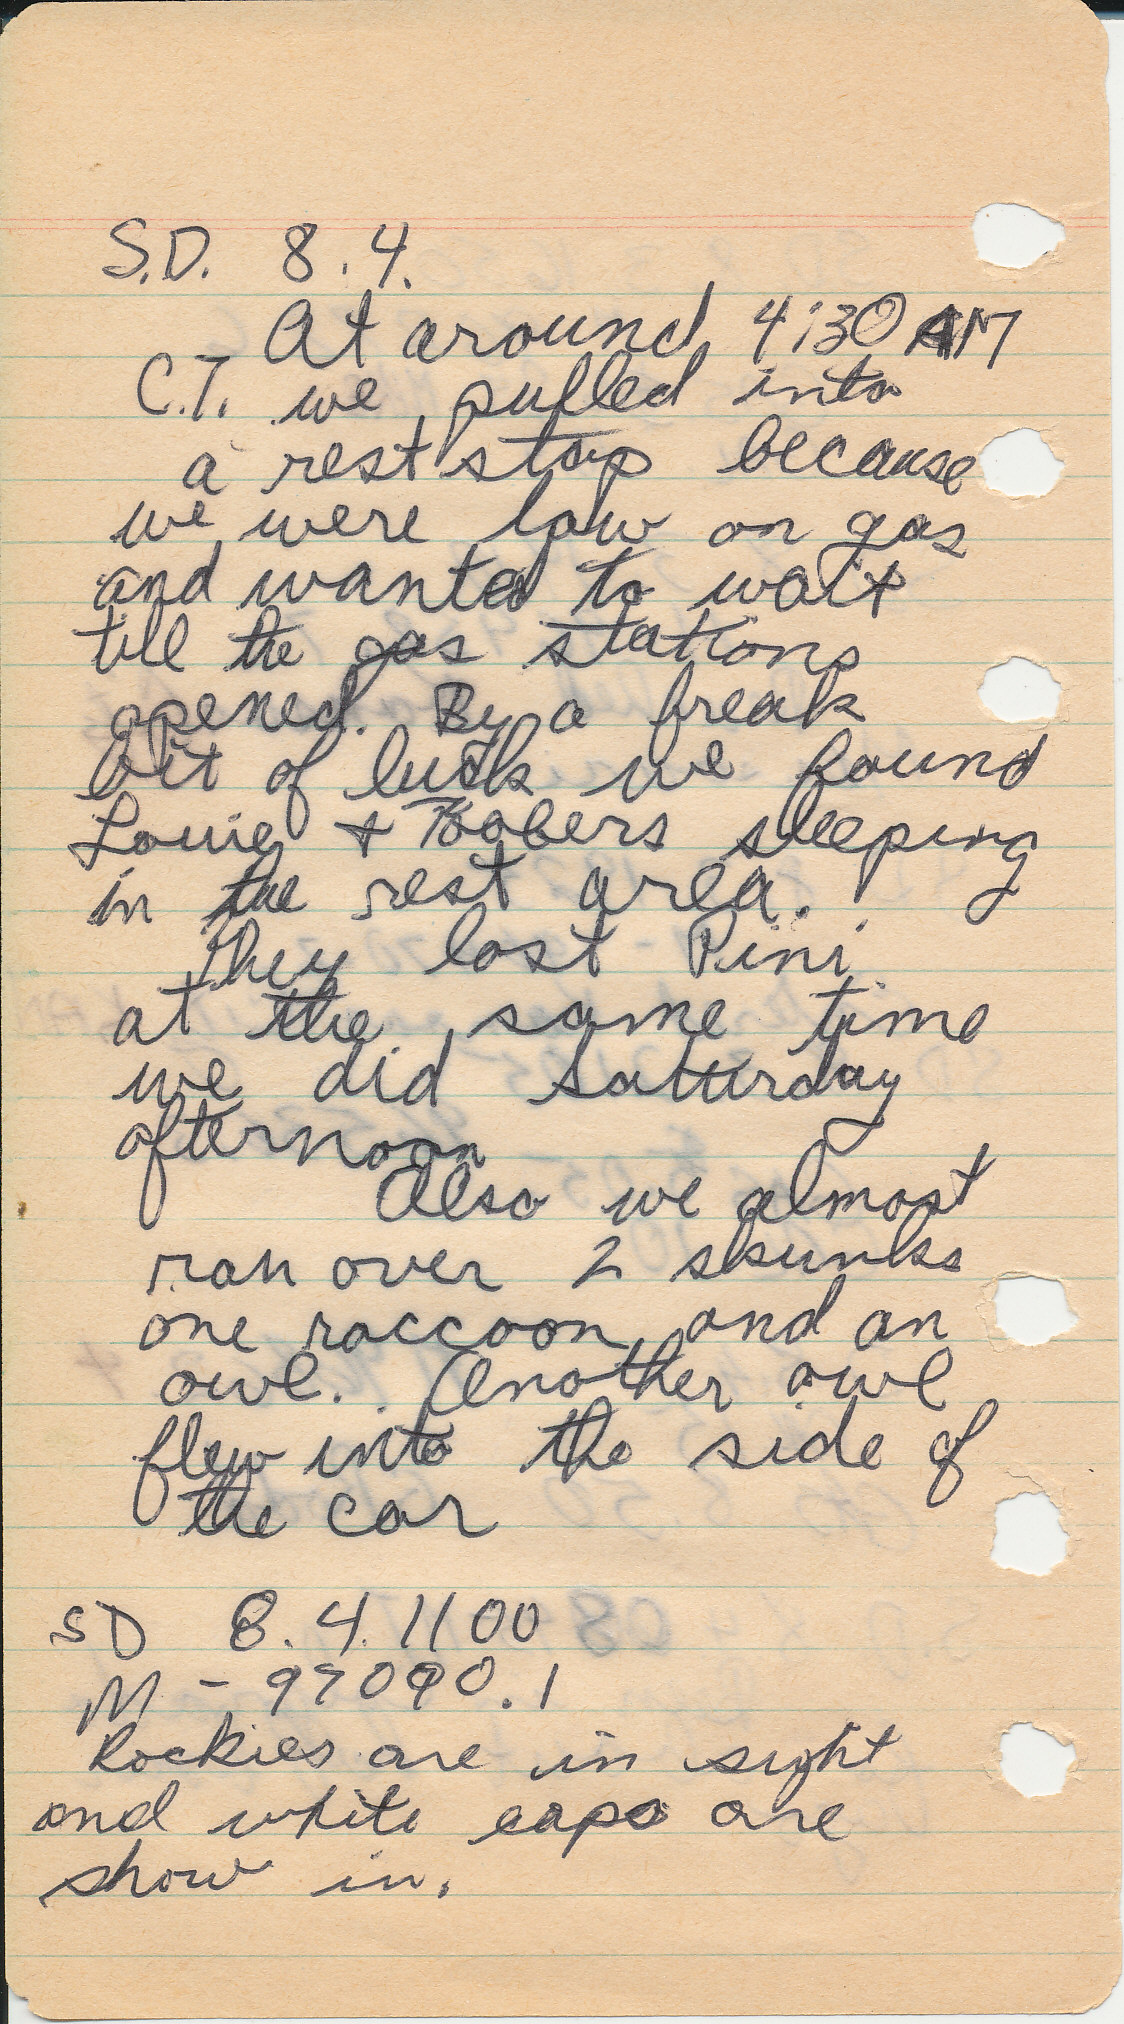 S.D. 8.4.
At around 4:30 AM
C.T. we pulled into
a rest stop because
we were low on gas
and wanted to wait
till the gas stations
opened. By a freak
bit of luck we found
Louie + Bobers sleeping
in the rest area.
They lost Pini
at the same time
we did Saturday
afternoon
Also we almost
ran over 2 skunks
one raccoon and an
owl. Another owl
flew into the side of
the car
SD 8.4.1100
M - 97090.1
Rockies are in sight
and white caps are
show in.